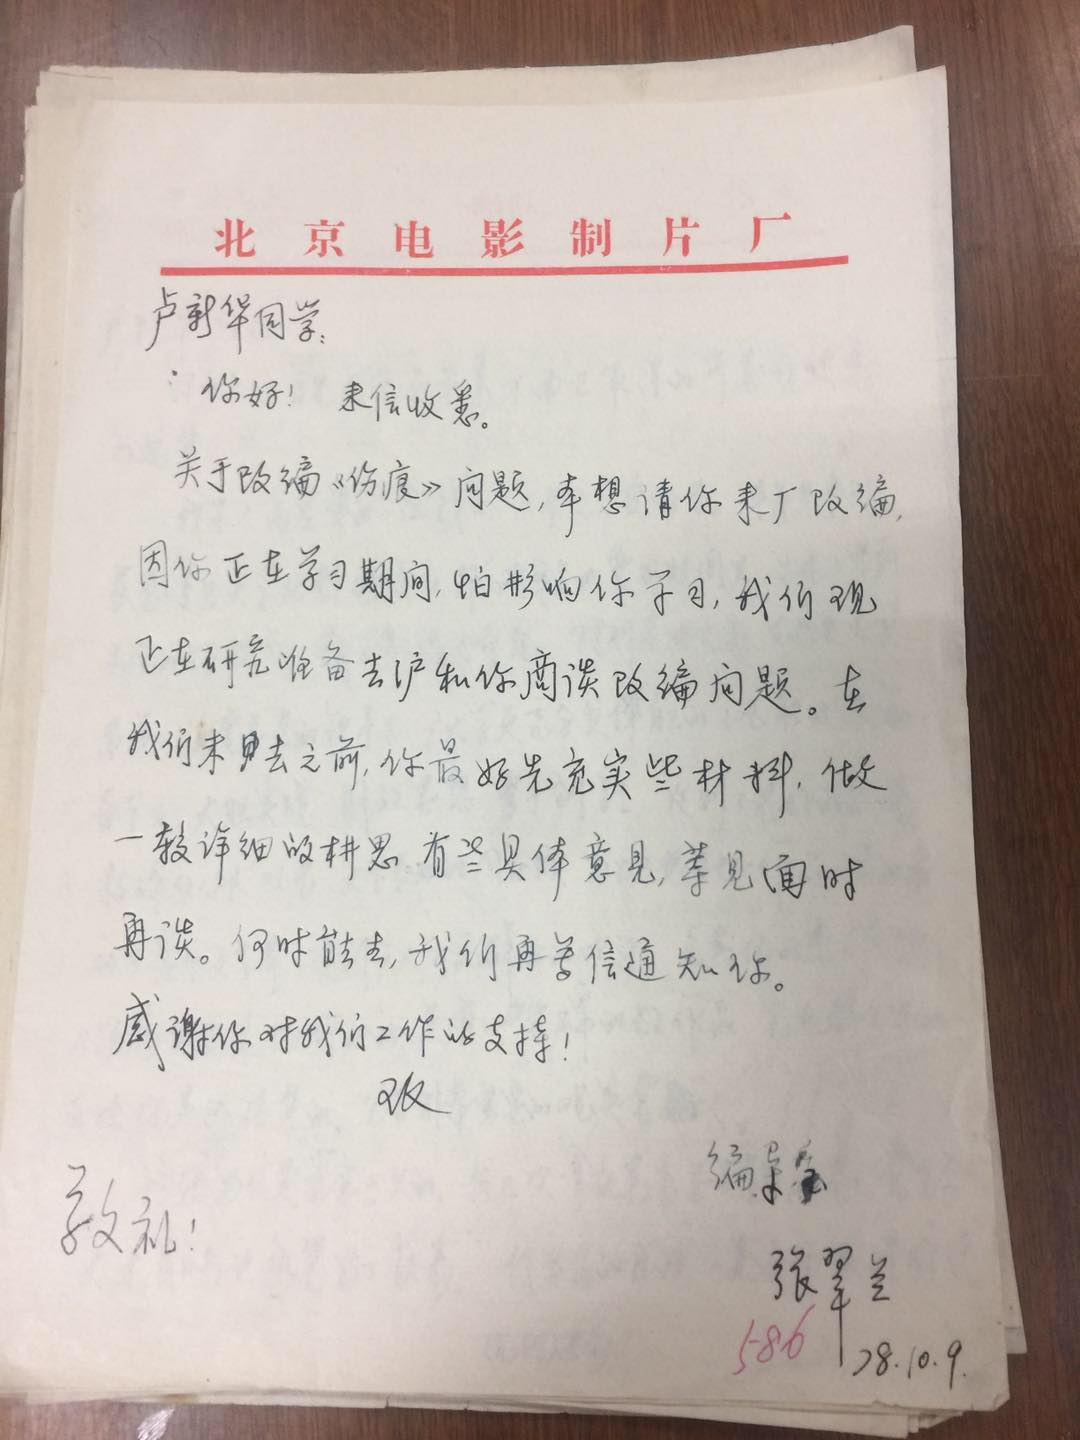 北京电影制片厂
卢新华同学：
你好！ 来信收悉。
关于改编《伤痕》问题，本想请你来厂改编，
因你正在学习期间，怕影响你学习，我们现
正在研究准备去沪和你商谈改编问题。在
我们未去之前，你最好先充实些材料，做
一较详细的构思 有些具体意见，等见面时
再谈。何时能去，我们再等信通知你。
感谢你对我们工作的支持！
致
敬礼！
编导室
张翠兰
586
78.10.9.